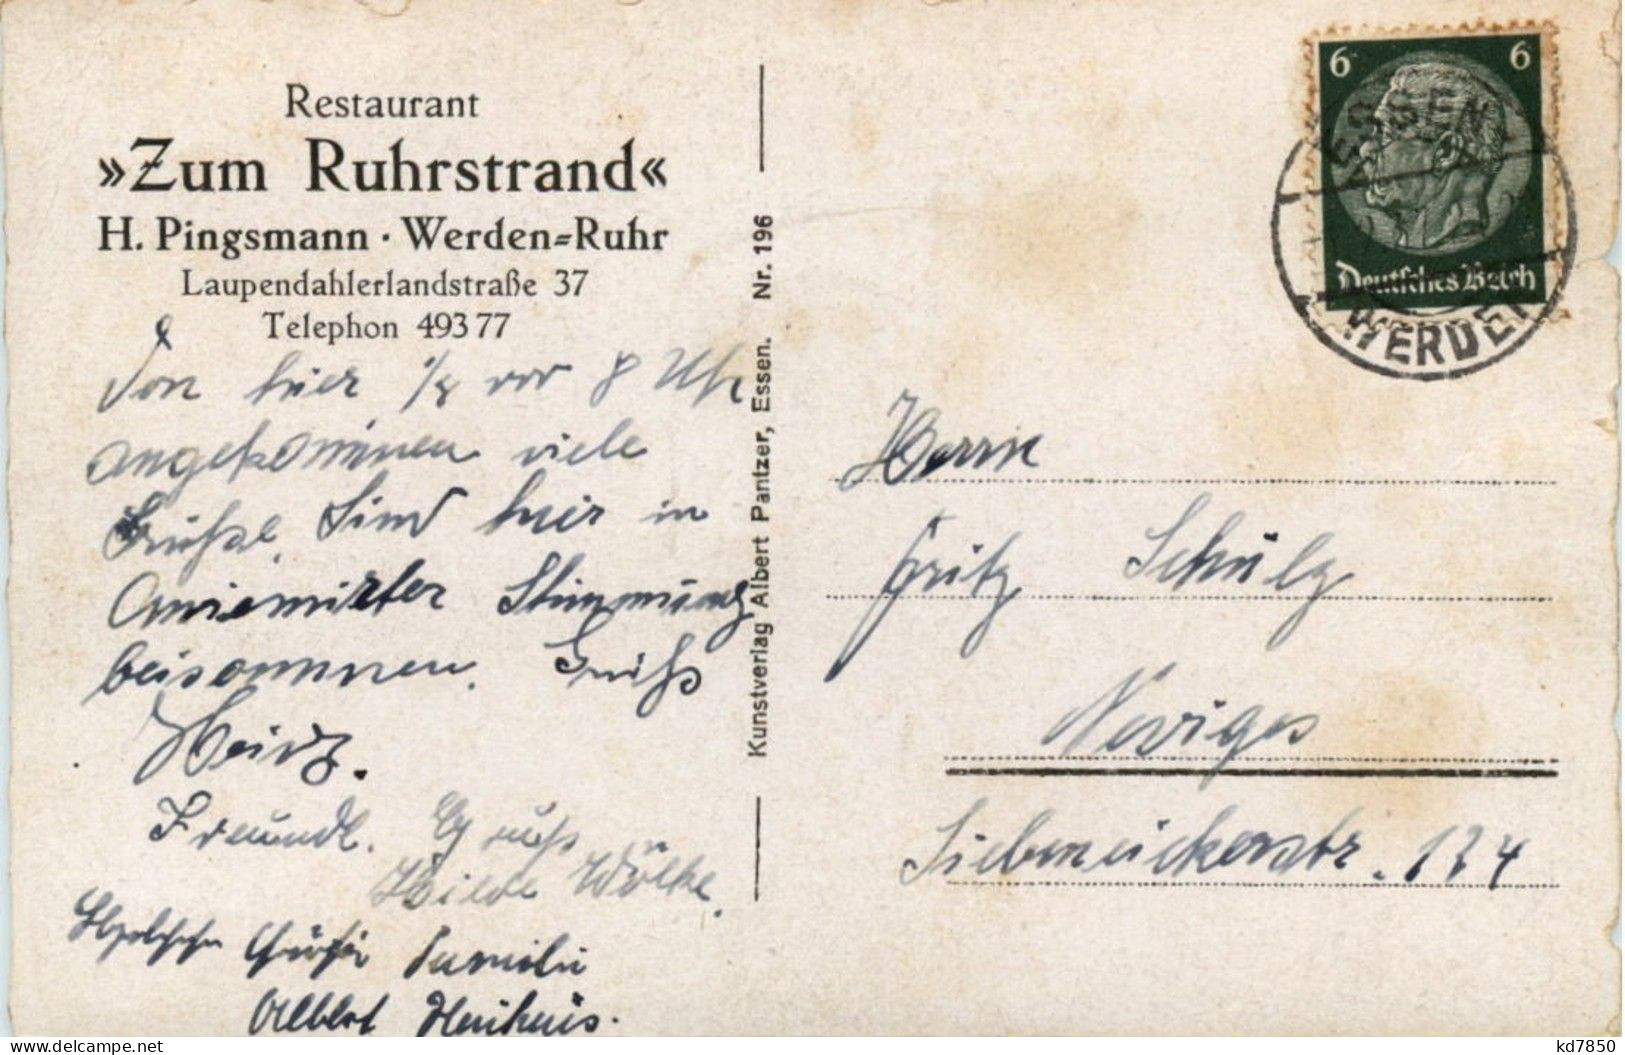 Restaurant
»Zum Ruhrstrand«
H. Pingsmann · Werden=Ruhr
Laupendahlerlandstraße 37
Telephon 493 77
Von hier 1/4 vor 8 Uhr
angekommen viele
Grüße. Sind hier in
Animirter Stimmung
beisammen. Gruß
Heinz.
Freundl. Gruß
Hilde Wölke.
Grüße Familie
Albert
Kunstverlag Albert Pantzer, Essen. Nr. 196
6 6
Deutsches Reich
ESSEN
WERDEN
Herrn
Fritz Schulz
Neviges
Siebeneickerstr. 174
kd7850